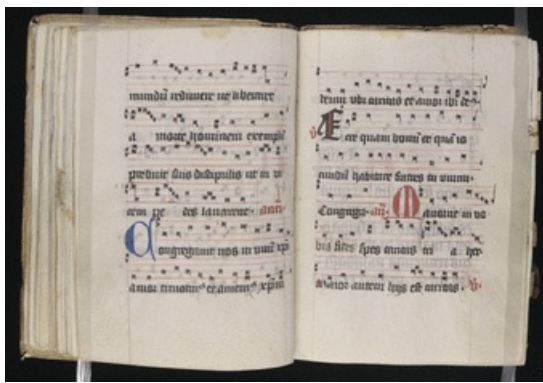 mundū redimere ut liberaret
a morte hominem exemplū
prebuit suis discipulis ut in vi
cem pe des lavarent
Congregavit nos in unū xpi
amor timeam⁹ et amem⁹ xpm
ubi caritas et amor ibi de⁹
V Ecce quam bonū et quā io
cundū habitare fratres in unum
Congrega. an. Maneat in vo
bis fides spes caritas tri a hec
Maior autem hijs est caritas. V